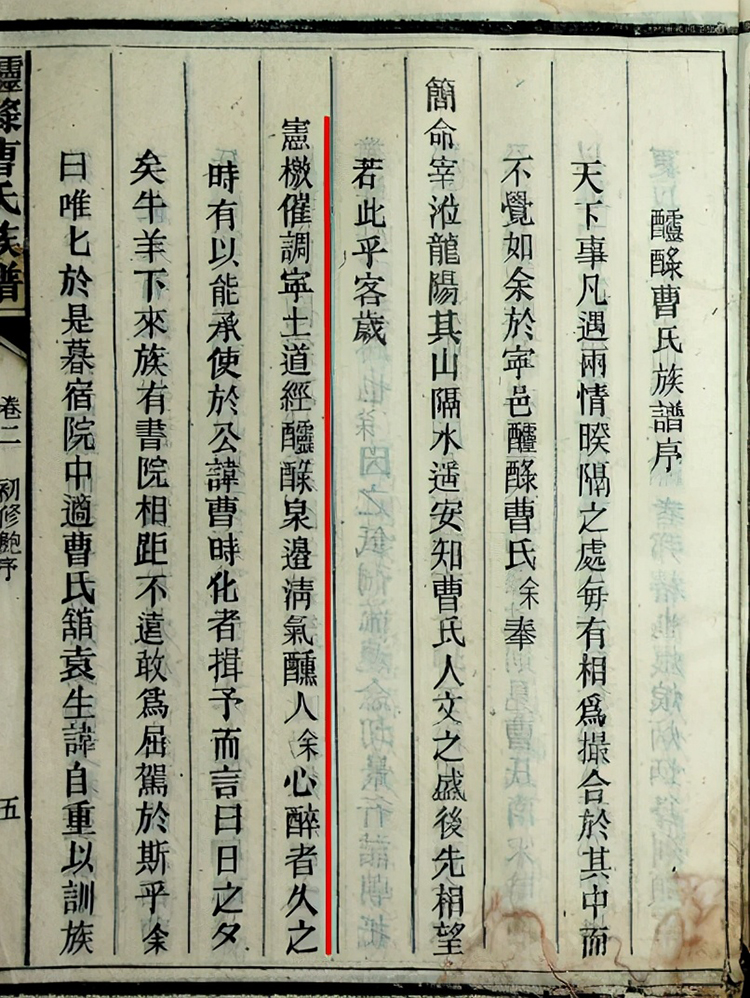 醽醁曹氏族譜序
天下事凡遇兩情暌隔之處每有相爲撮合於其中而
不覺如余於寧邑醽醁曹氏余奉
簡命宰涖龍陽其山隔水遥安知曹氏人文之盛後先相望
若此乎客歲
憲檄催調寧土道經醽醁泉邉清氣醺人余心醉者久之
時有以能承使於公諱曹時化者揖予而言曰日之夕
矣牛羊下來族有書院相距不遠敢爲屈駕於斯乎余
曰唯匕於是暮宿院中適曹氏舘袁生諱自重以訓族
醁曹氏族譜
卷二
初修鮑序
五